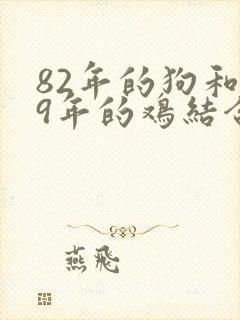 82年的狗和
9年的鸡结合
燕飛